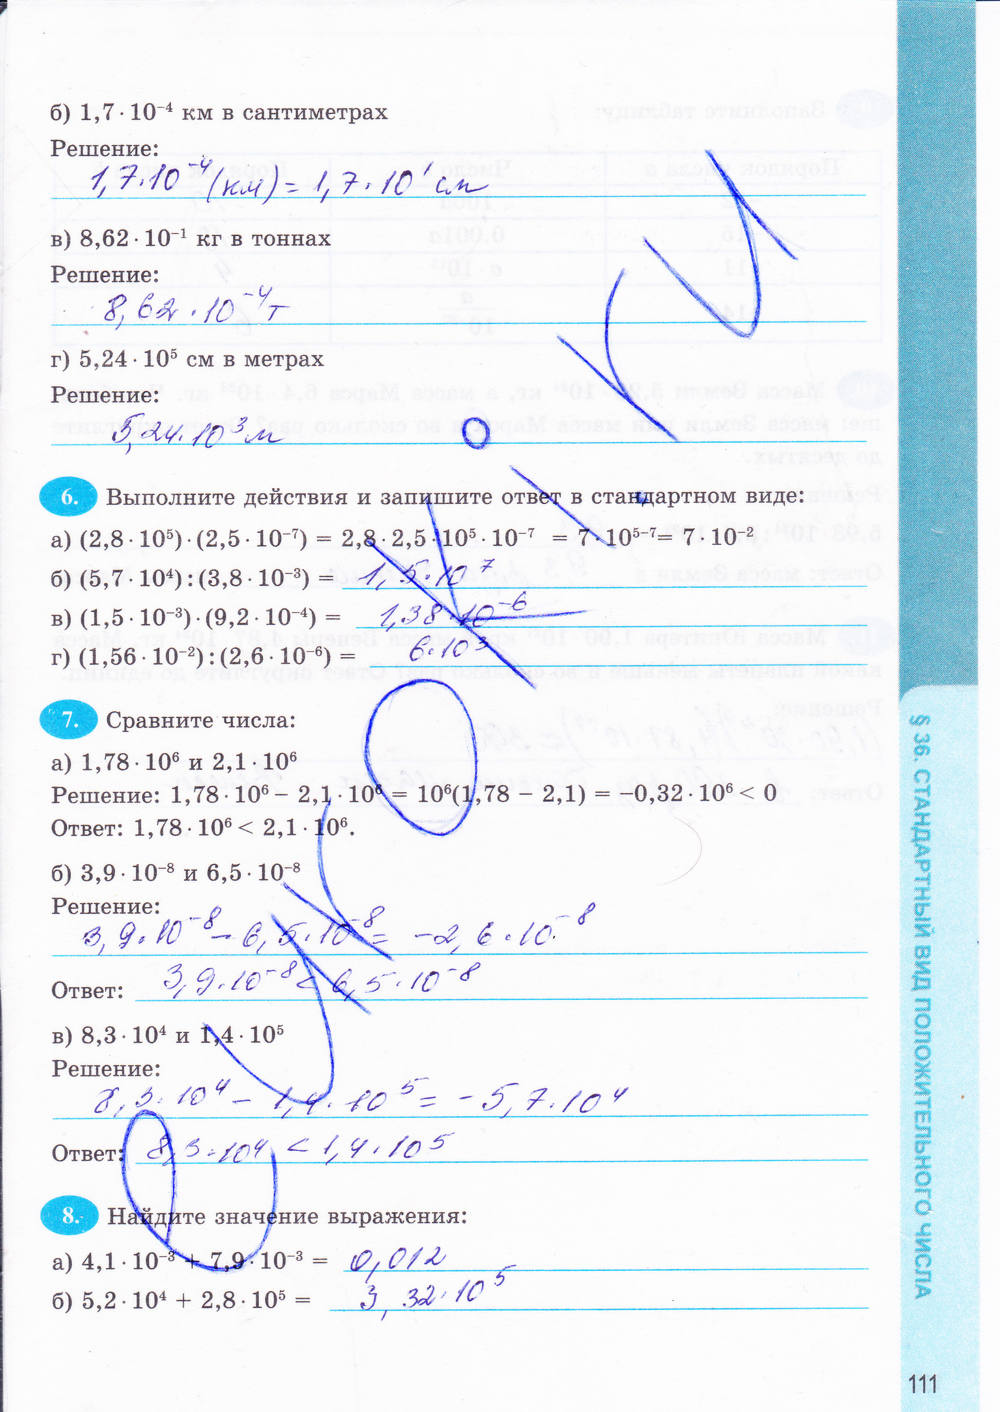 б) 1,7 · 10⁻⁴ км в сантиметрах
Решение:
1,7·10⁻⁴(км) = 1,7·10¹ см
в) 8,62 · 10⁻¹ кг в тоннах
Решение:
8,62·10⁻⁴т
г) 5,24 · 10⁵ см в метрах
Решение:
5,24·10³м
6. Выполните действия и запишите ответ в стандартном виде:
а) (2,8 · 10⁵) · (2,5 · 10⁻⁷) = 2,8 · 2,5 · 10⁵ · 10⁻⁷ = 7 · 10⁵⁻⁷= 7 · 10⁻²
б) (5,7 · 10⁴) : (3,8 · 10⁻³) = 1,5·10⁷
в) (1,5 · 10⁻³) · (9,2 · 10⁻⁴) = 1,38·10⁻⁶
г) (1,56 · 10⁻²) : (2,6 · 10⁻⁶) = 6·10³
7. Сравните числа:
а) 1,78 · 10⁶ и 2,1 · 10⁶
Решение: 1,78 · 10⁶ − 2,1 · 10⁶ = 10⁶(1,78 − 2,1) = −0,32 · 10⁶ < 0
Ответ: 1,78 · 10⁶ < 2,1 · 10⁶.
б) 3,9 · 10⁻⁸ и 6,5 · 10⁻⁸
Решение:
3,9·10⁻⁸ − 6,5·10⁻⁸ = −2,6·10⁻⁸
Ответ: 3,9·10⁻⁸ < 6,5·10⁻⁸
в) 8,3 · 10⁴ и 1,4 · 10⁵
Решение:
8,3·10⁴ − 1,4·10⁵ = −5,7·10⁴
Ответ: 8,3·10⁴ < 1,4·10⁵
8. Найдите значение выражения:
а) 4,1 · 10⁻³ + 7,9 · 10⁻³ = 0,012
б) 5,2 · 10⁴ + 2,8 · 10⁵ = 3,32·10⁵
§ 36. СТАНДАРТНЫЙ ВИД ПОЛОЖИТЕЛЬНОГО ЧИСЛА
111